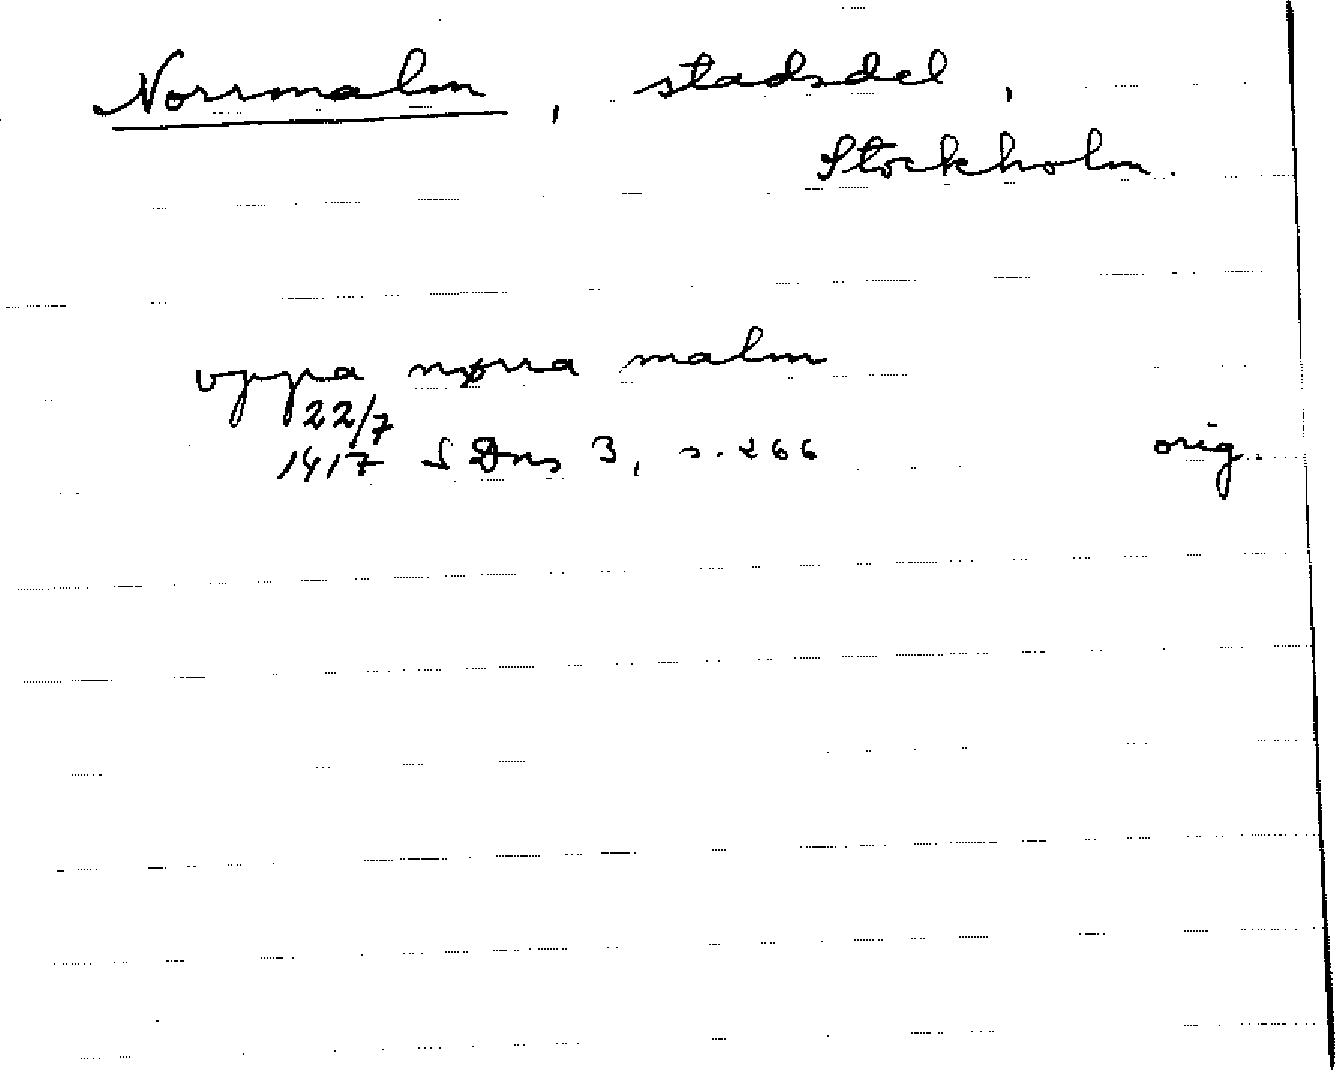 Norrmalm, stadsdel,
Stockholm.
vppa nørra malm
22/7
1417 SDns 3, s. 266 orig.